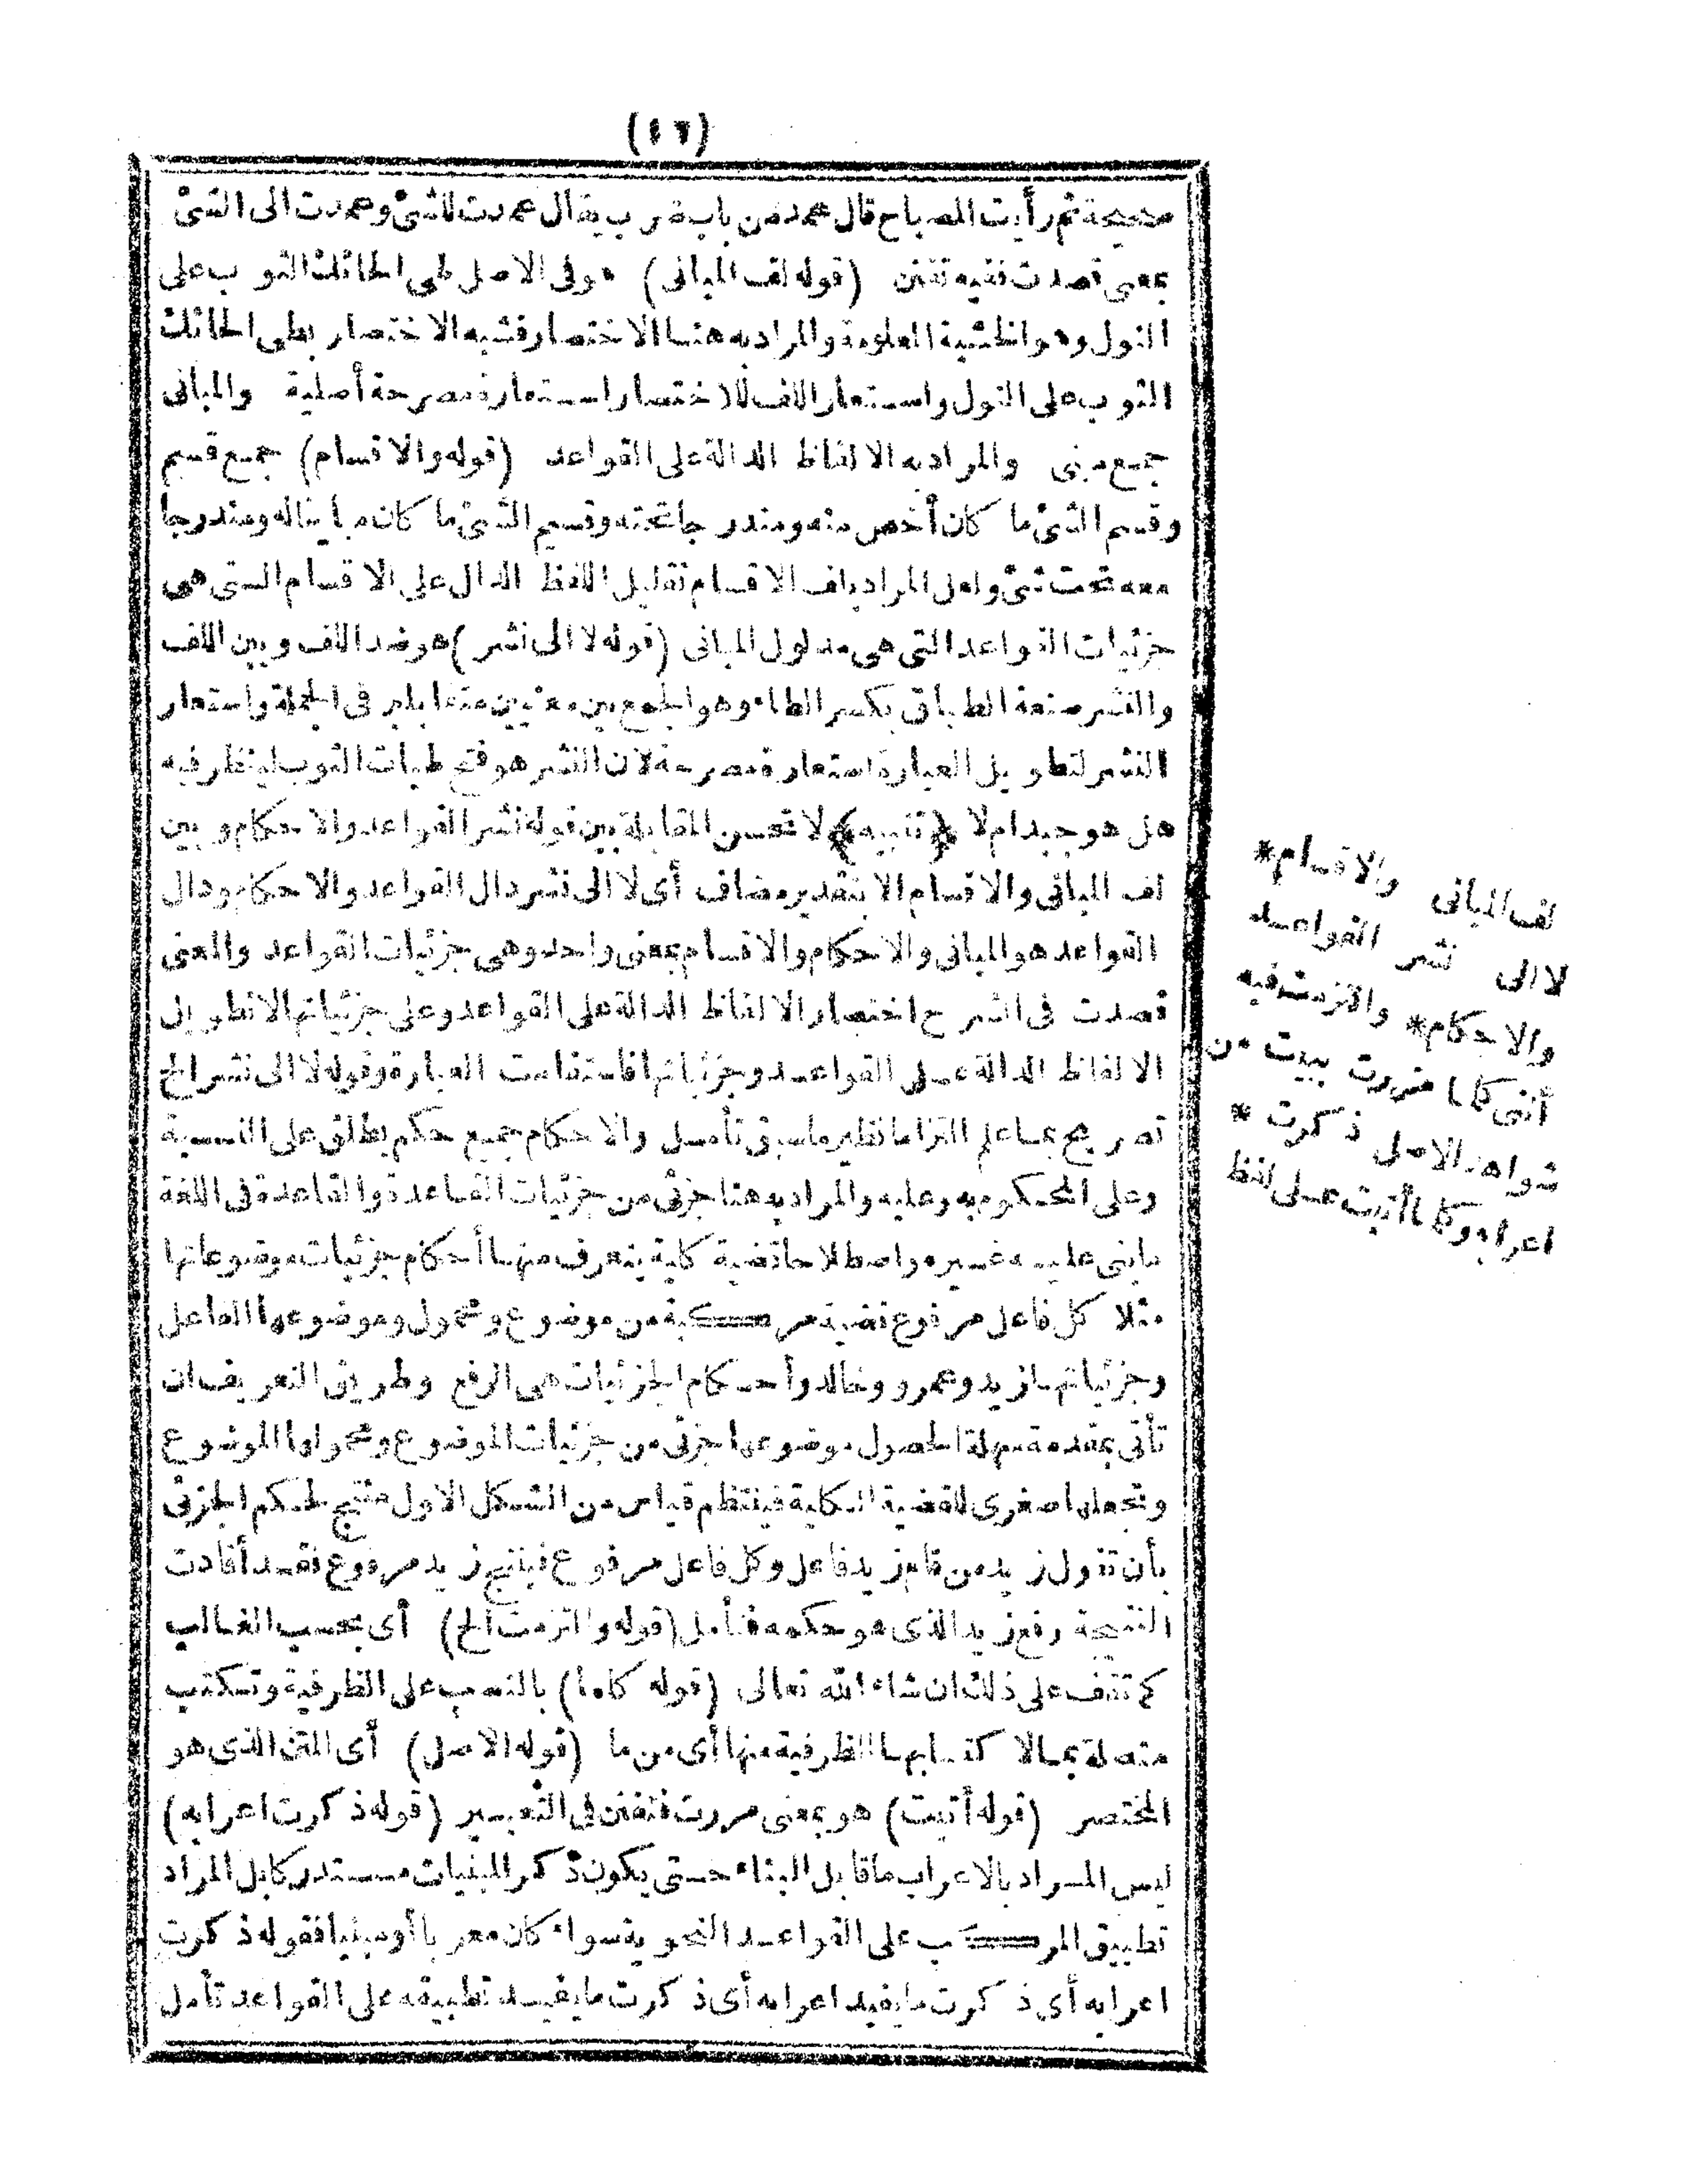 (٤٦)
صحيحة ثم رأيت المصباح قال عمد من باب ضرب يقال عمدت للشئ وعمدت الى الشئ
بمعنى قصدت ففيه تفنن (قوله لف المبانى) هو فى الاصل طى الحائك الثوب على
النول وهو الخشبة المعلومة والمراد به هنا الاختصار فشبه الاختصار بطى الحائك
الثوب على النول واستعار اللف للاختصار استعارة مصرحة أصلية والمبانى
جمع مبنى والمراد به الالفاظ الدالة على القواعد (قوله والاقسام) جمع قسم
وقسم الشئ ما كان أخص منه ومندرجا تحته وقسيم الشئ ما كان مباينا له ومندرجا
معه تحت شئ ولعل المراد بلف الاقسام تقليل اللفظ الدال على الاقسام التى هى
جزئيات القواعد التى هى مدلول المبانى (قوله لا الى نشر) هو ضد اللف وبين اللف
والنشر صنعة الطباق بكسر الطاء وهو الجمع بين معنيين متقابلين فى الجملة واستعار
النشر لتطويل العبارة استعارة مصرحة لان النشر هو فتح طيات الثوب لينظر فيه
هل هو جيد ام لا ﴿تنبيه﴾ لا تحسن المقابلة بين قوله نشر القواعد والاحكام وبين
لف المبانى والاقسام الا بتقدير مضاف أى لا الى نشر دال القواعد والاحكام ودال
القواعد هو المبانى والاحكام والاقسام بمعنى واحد وهى جزئيات القواعد والمعنى
قصدت فى الشرح اختصار الالفاظ الدالة على القواعد وعلى جزئياتها لا تطويل
الالفاظ الدالة على القواعد وجزئياتها فاستقامت العبارة وقوله لا الى نشر الخ
تصريح بما علم التزاما نظير ما سبق تأمل والاحكام جمع حكم يطلق على النسبة
وعلى المحكوم به وعليه والمراد به هنا جزئى من جزئيات القاعدة والقاعدة فى اللغة
ما بنى عليه غيره واصطلاحا قضية كلية يتعرف منها أحكام جزئيات موضوعاتها
مثلا كل فاعل مرفوع قضية مركبة من موضوع ومحمول وموضوعها الفاعل
وجزئياتها زيد وعمرو وخالد وأحكام الجزئيات هى الرفع وطريق التعريف ان
تأتى بمقدمة سهلة الحصول موضوعها جزئى من جزئيات الموضوع ومحمولها الموضوع
وتجعلها صغرى للقضية الكلية فينتظم قياس من الشكل الاول منتج لحكم الجزئى
بأن تقول زيد من قام زيد فاعل وكل فاعل مرفوع فينتج زيد مرفوع فقد أفادت
النتيجة رفع زيد الذى هو حكمه فتأمل (قوله والتزمت الخ) أى بحسب الغالب
كما تقف على ذلك ان شاء الله تعالى (قوله كلما) بالنصب على الظرفية وتكتب
متصلة بما لاكتسابها الظرفية منها أى من ما (قوله الاصل) أى المتن الذى هو
المختصر (قوله أتيت) هو بمعنى مررت فتفنن فى التعبير (قوله ذكرت اعرابه)
ليس المراد بالاعراب ما قابل البناء حتى يكون ذكر المبنيات مستدركا بل المراد
تطبيق المركب على القواعد النحوية سواء كان معربا أو مبنيا فقوله ذكرت
اعرابه أى ذكرت ما يفيد اعرابه أى ذكرت ما يفيد تطبيقه على القواعد تأمل
لف المبانى والاقسام*
لا الى نشر القواعد
والاحكام* والتزمت فيه
أننى كلما مررت ببيت من
شواهد الاصل ذكرت *
اعرابه وكلما أتيت على لفظ